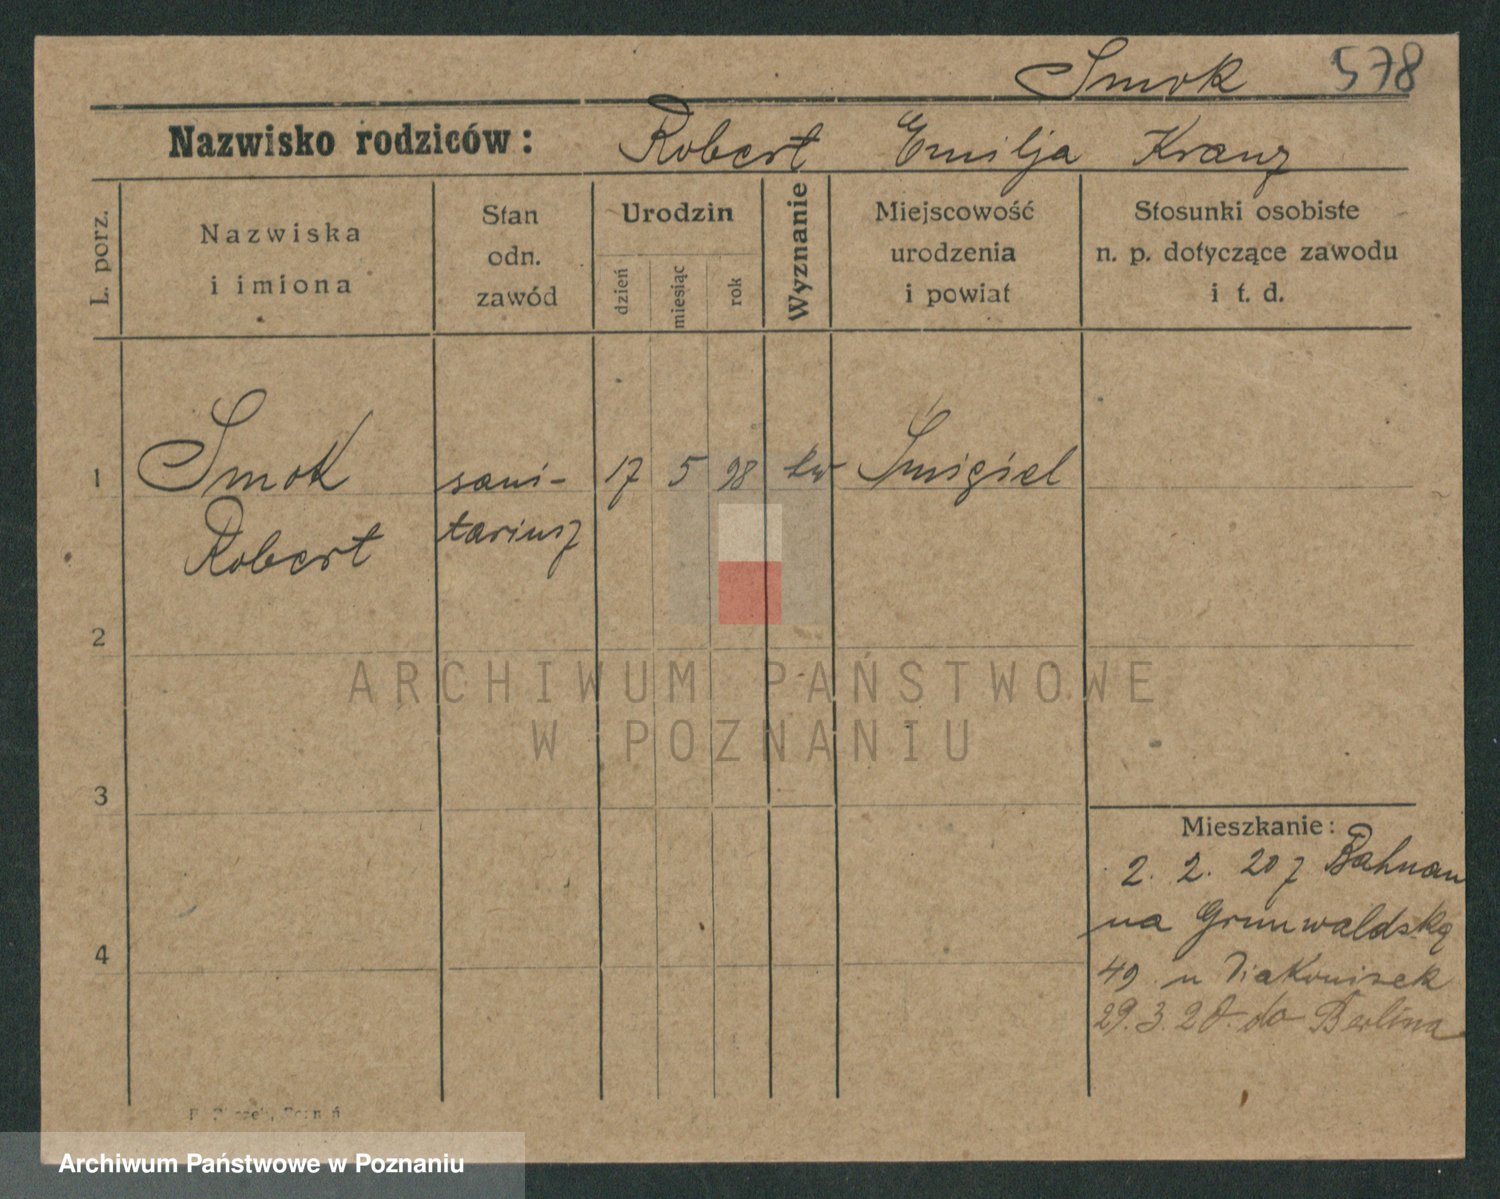 Smok 578
Nazwisko rodziców: Robert Emilja Kranz
L. porz.
Nazwiska
i imiona
Stan
odn.
zawód
Urodzin
dzień
miesiąc
rok
Wyznanie
Miejscowość
urodzenia
i powiat
Stosunki osobiste
n. p. dotyczące zawodu
i t. d.
1 Smok sani- 17 5 98 Śmigiel
Robert tariusz
2
3
4
Mieszkanie:
2. 2. 20 z
na Grunwaldską
49 u Diakonisek
29.3.20. do Berlina
ARCHIWUM PAŃSTWOWE
W POZNANIU
Archiwum Państwowe w Poznaniu